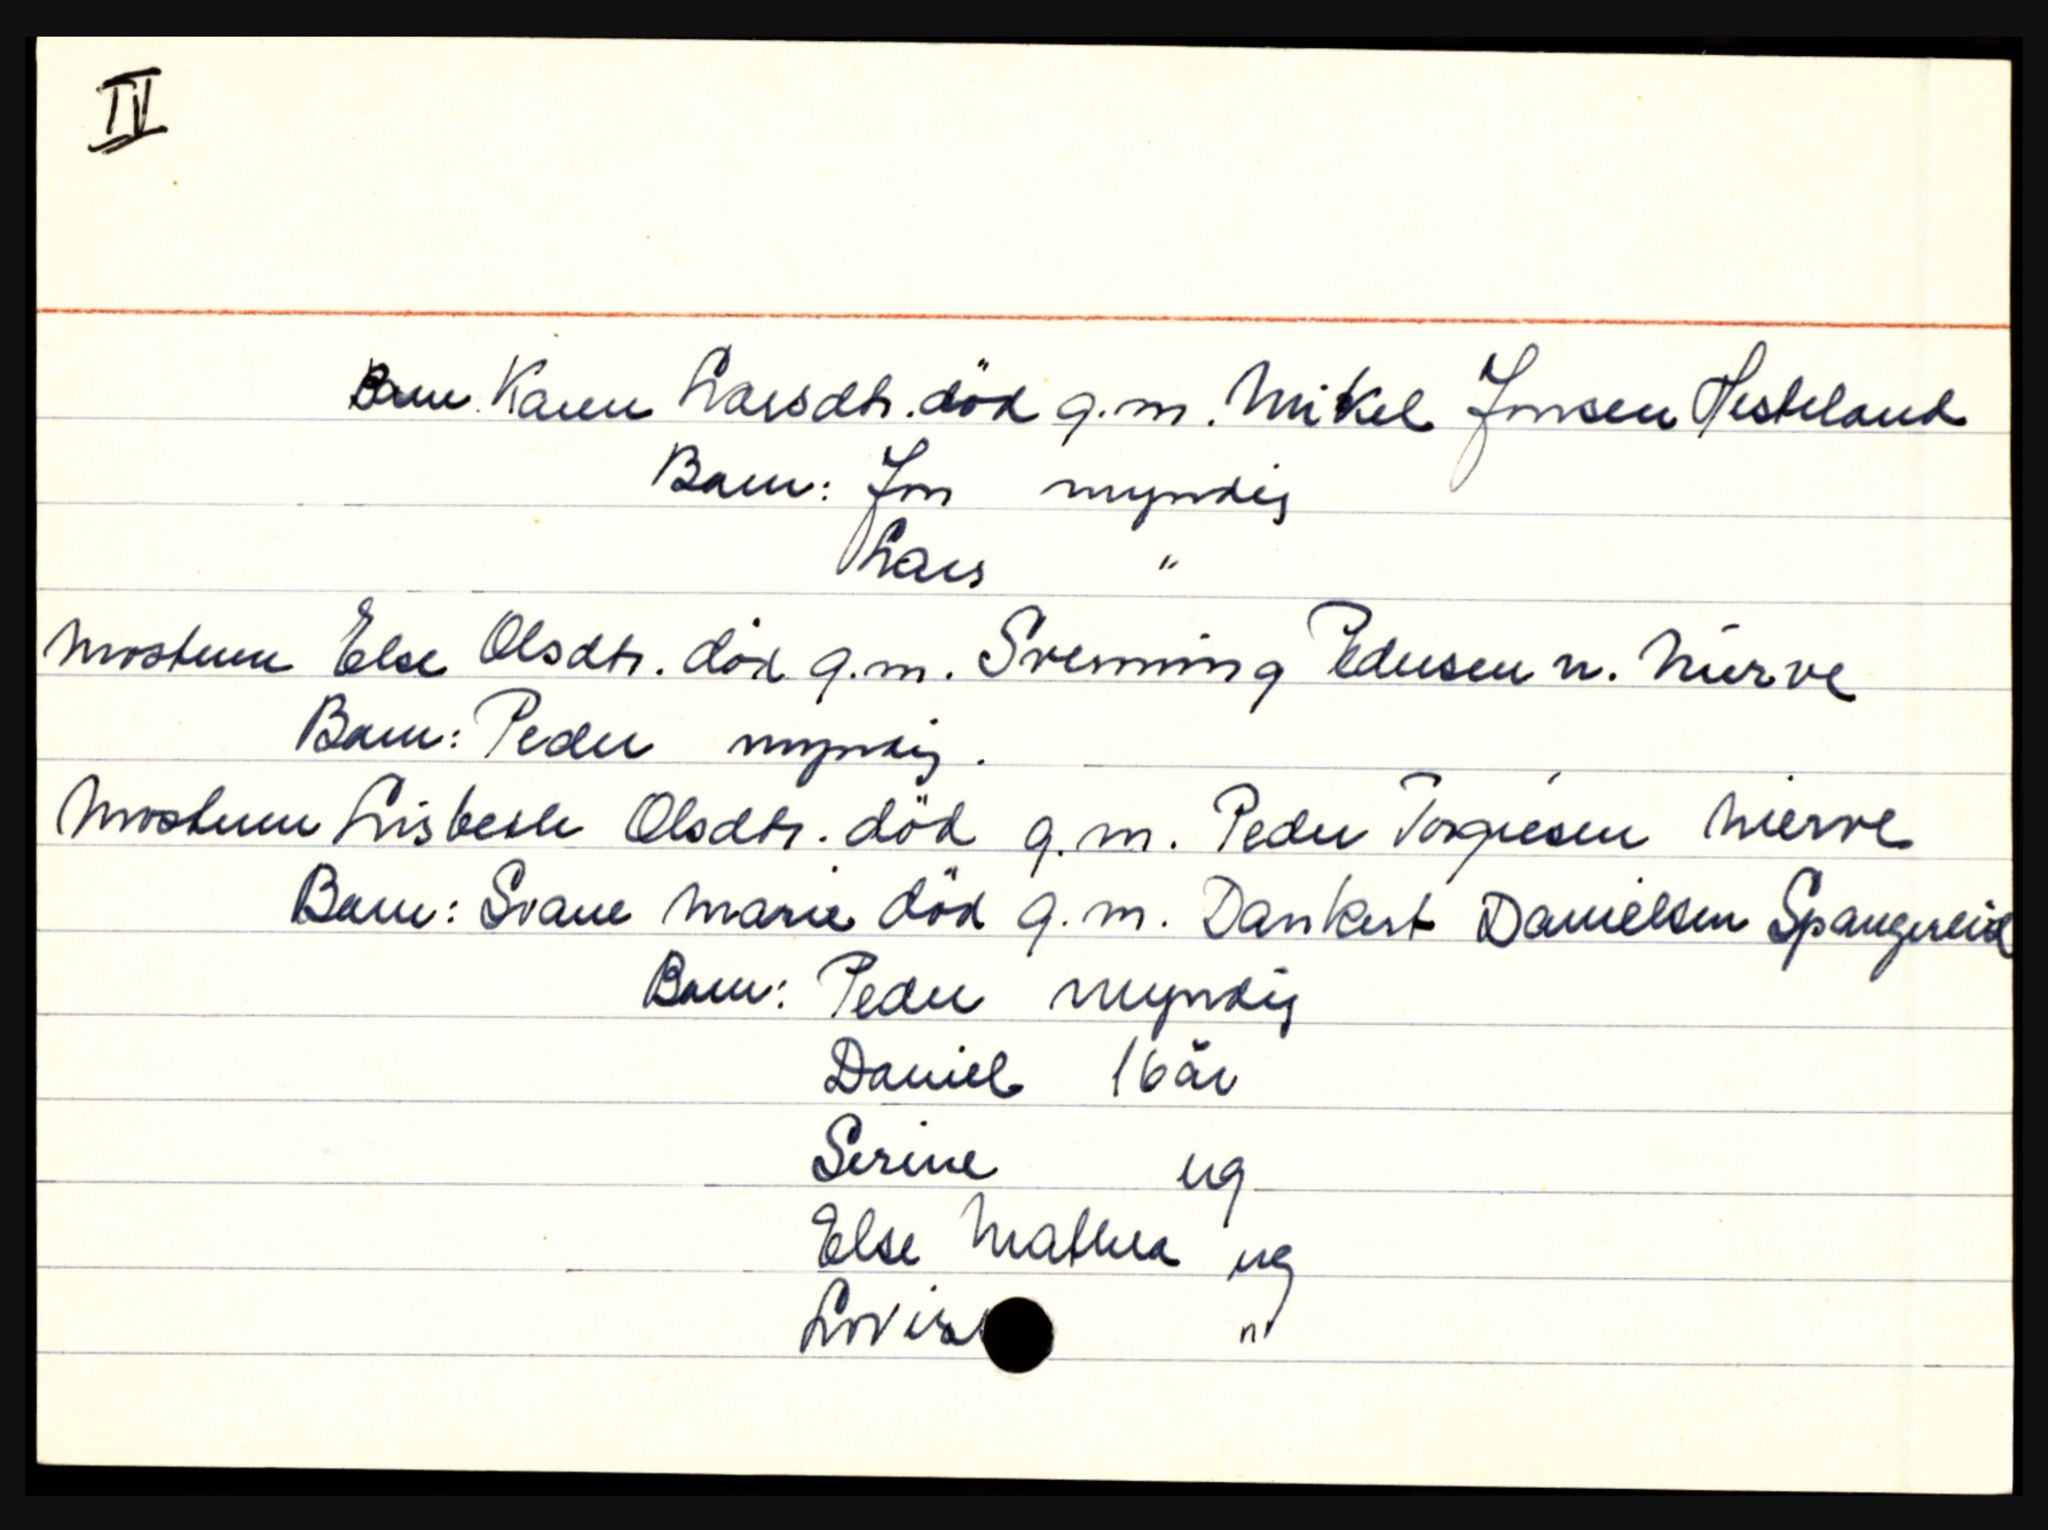 IV
Barn: Karen Larsdtr. död g.m. Mikel Jonsen Hesteland
Barn: Jon myndig
Lars "
Mosteren Else Olsdtr. död g.m. Svenning Pedersen n. Njerve
Barn: Peder myndig.
Mosteren Lisbeth Olsdtr. död g.m. Peder Torgiesen Njerve
Barn: Svane Marie död g.m. Dankert Danielsen Spangereid
Barn: Peder myndig
Daniel 16 år
Serine ug
Else Mathea ug
"